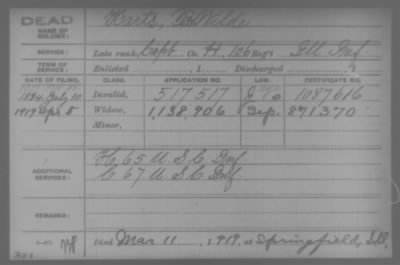 DEAD
NAME OF SOLDIER: Harts, De Wilde
SERVICE: Late rank, Capt Co. H, 106 Reg't Ill Inf
TERM OF SERVICE: Enlisted , 1 Discharged , 1
DATE OF FILING. CLASS. APPLICATION NO. LAW. CERTIFICATE NO.
July 10 Invalid, 517517 1087616
1919 Apr 8 Widow, 1,138,906 871370
Minor,
ADDITIONAL SERVICES: H 65 U.S.C. Inf.
C 67 U.S.C. Inf.
REMARKS:
Died Mar 11, 1919, at Springfield, Ill,